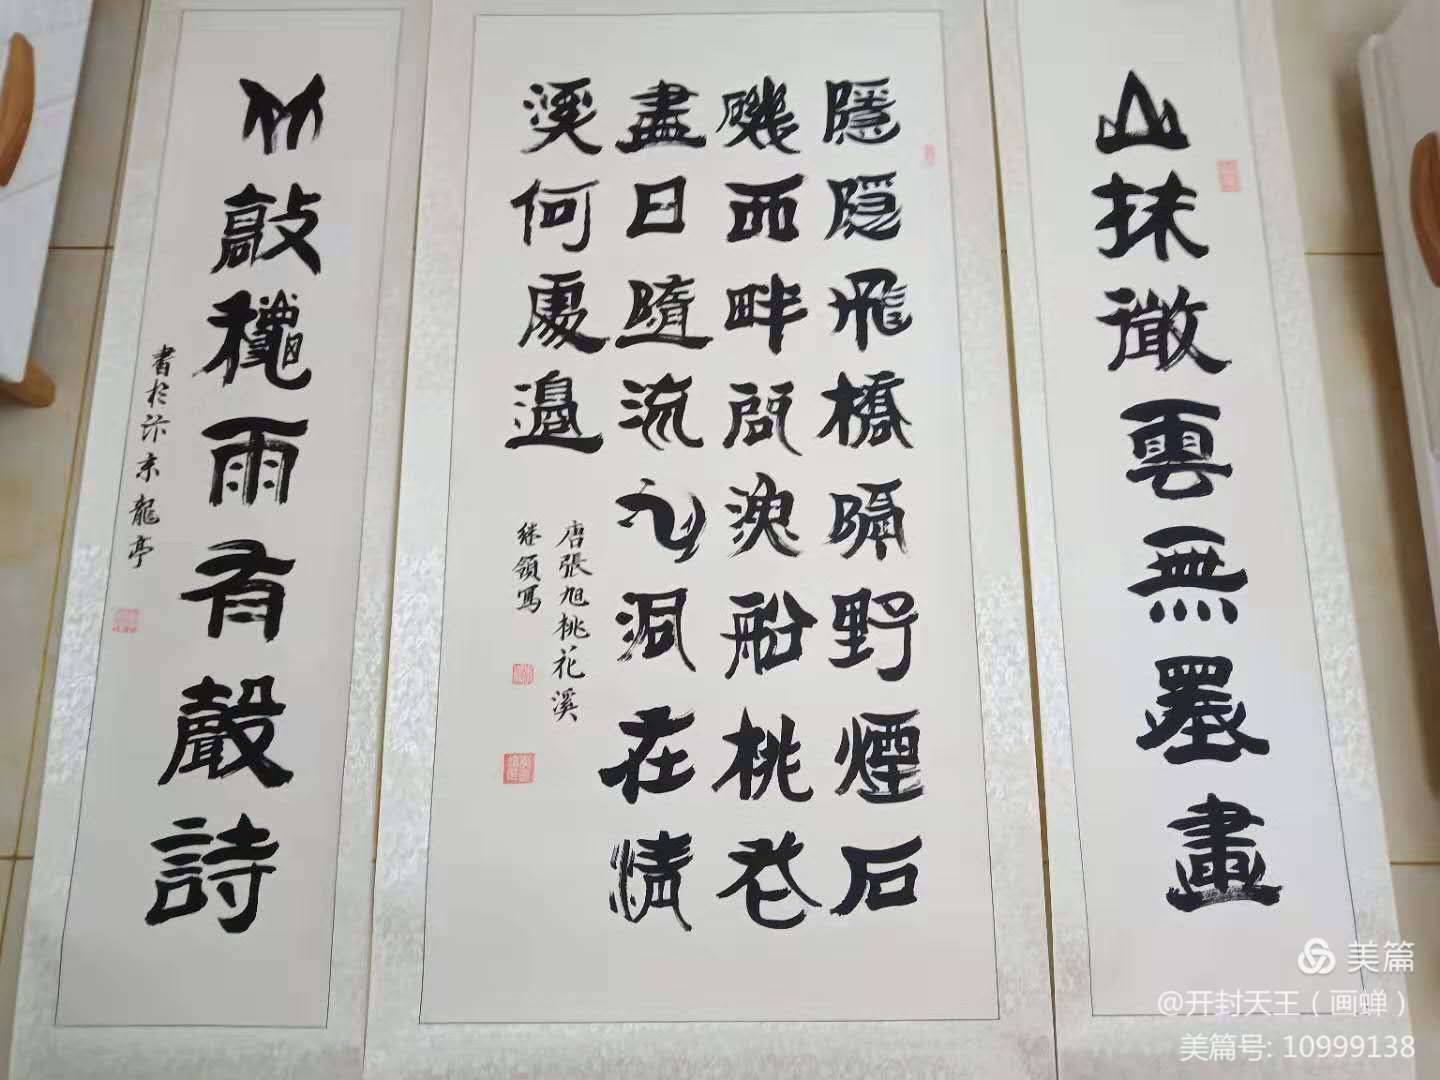 山抹微雲無墨畫
隱隐飛橋隔野煙石
磯西畔問漁船桃花
盡日隨流水洞在情
溪何處邊
唐張旭桃花溪
継領写
竹敲穐雨有聲詩
書於汴京龍亭
美篇
@开封天王（画蝉）
美篇号: 10999138